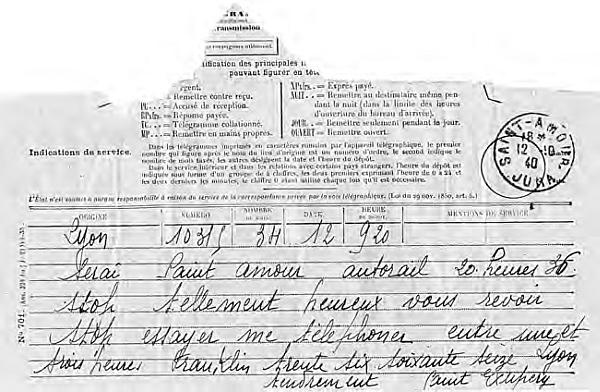 transmission
ification des principales
pouvant figurer en tê
rgent.
Remettre contre reçu.
PC... = Accusé de réception.
RPx... = Réponse payée.
TC... = Télégramme collationné.
MP... = Remettre en mains propres.
XPx... = Exprès payé.
NUIT.. = Remettre au destinataire même pen-
dant la nuit (dans la limite des heures
d'ouverture du bureau d'arrivée).
JOUR.. = Remettre seulement pendant le jour.
OUVERT = Remettre ouvert.
Indications de service.
Dans les télégrammes imprimés en caractères romains par l'appareil télégraphique, le premier
nombre qui figure après le nom du lieu d'origine est un numéro d'ordre, le second indique le
nombre de mots taxés, les autres désignent la date et l'heure du dépôt.
Dans le service intérieur et dans les relations avec certains pays étrangers, l'heure du dépôt est
indiquée sous forme d'un groupe de 4 chiffres, les deux premiers exprimant l'heure de 0 à 24 et
les deux derniers les minutes, le chiffre 0 étant utilisé chaque fois qu'il est nécessaire.
SAINT-AMOUR
18 *
12 -10
40
JURA
L'État n'est soumis à aucune responsabilité à raison du service de la correspondance privée par la voie télégraphique. (Loi du 29 nov. 1850, art. 6.)
ORIGINE NUMÉRO NOMBRE DE MOTS DATE HEURE DE DÉPÔT MENTIONS DE SERVICE
Lyon 10315 34 12 920
Serai Saint amour autorail 20 heures 36.
stop tellement heureux vous revoir
stop essayer me téléphoner entre une et
trois heures Franklin trente six soixante seize Lyon
tendrement Saint Exupéry
N° 701.